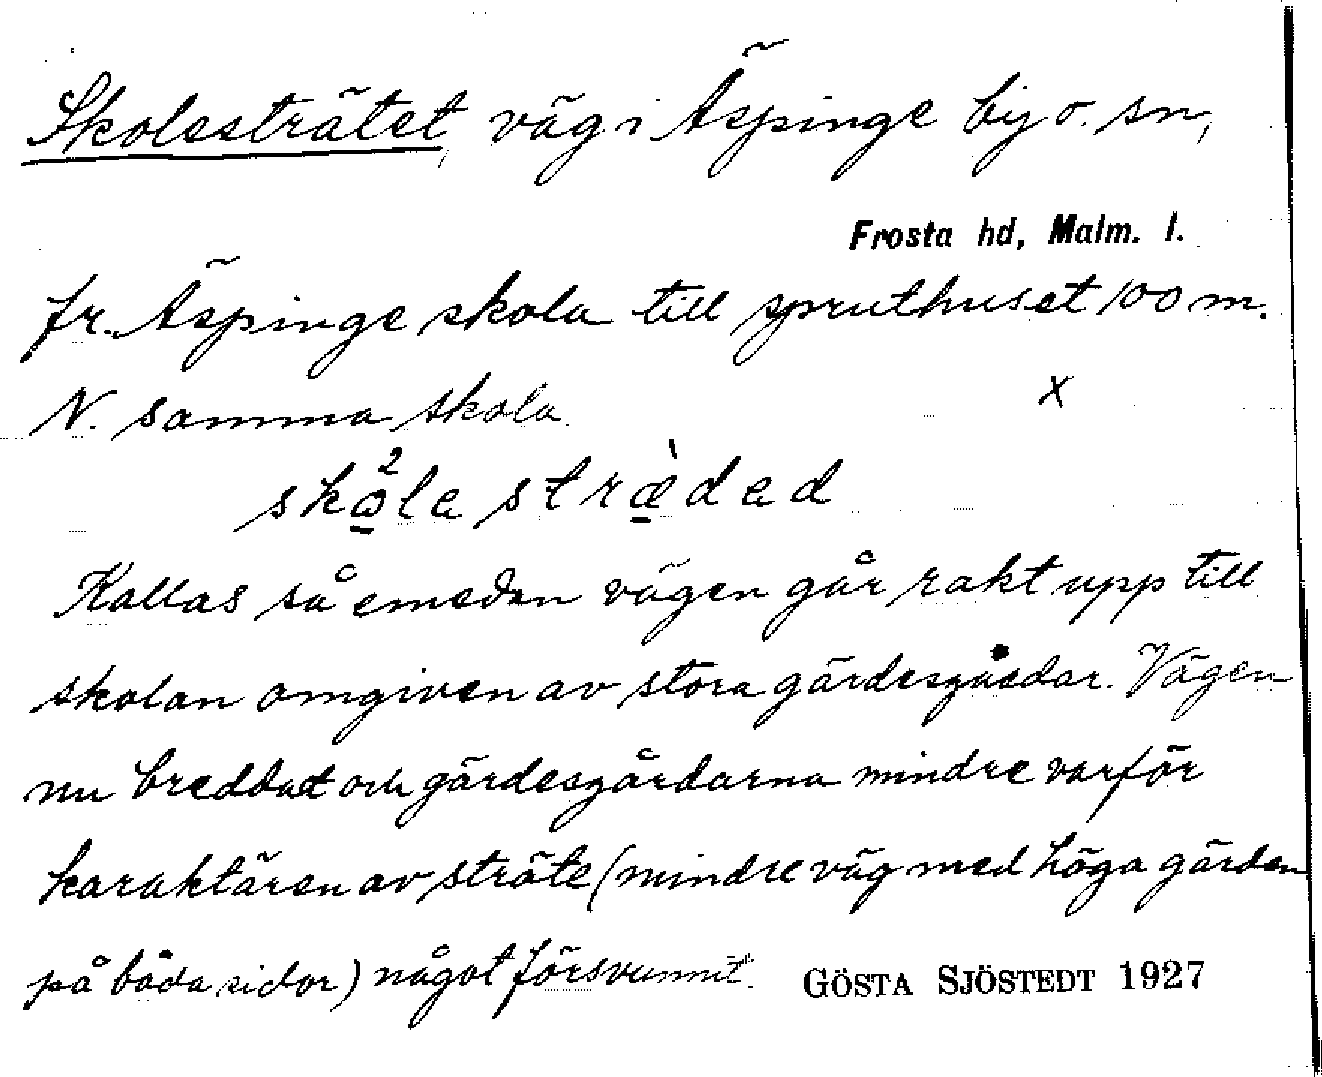 Skolesträtet, väg i Äspinge by o. sn,
Frosta hd, Malm. l.
fr. Äspinge skola till spruthuset 100 m.
N. samma skola.
x
skω̱²le stræ̱̀ded
Kallas så emedan vägen går rakt upp till
skolan omgiven av stora gärdesgårdar. Vägen
nu breddad och gärdesgårdarna mindre varför
karaktären av sträte (mindre väg med höga gärden
på båda sidor) något försvunnit. GÖSTA SJÖSTEDT 1927